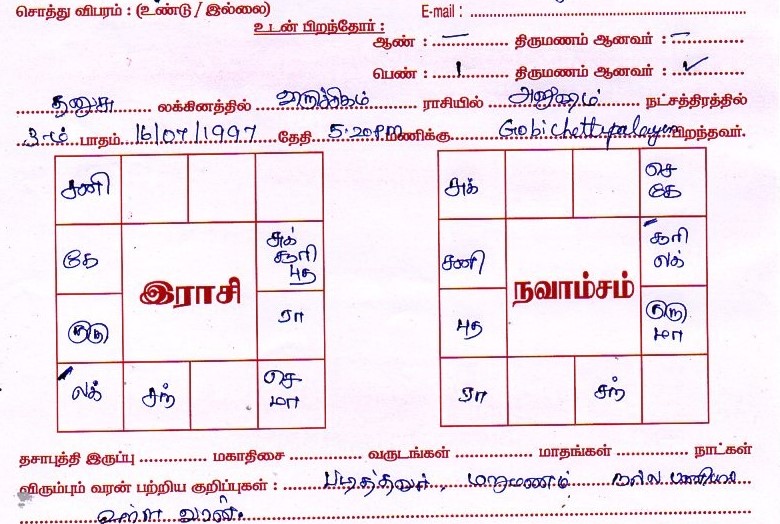 சொத்து விபரம் : (உண்டு / இல்லை)
E-mail :
உடன் பிறந்தோர் :
ஆண் : — திருமணம் ஆனவர் : —
பெண் : 1 திருமணம் ஆனவர் : ✓
தனுசு லக்கினத்தில் விருச்சிகம் ராசியில் அனுஷம் நட்சத்திரத்தில்
3-ம் பாதம் 16/07/1997 தேதி 5.20 PM மணிக்கு Gobichettipalayam பிறந்தவர்.
சனி
கே
குரு
லக்
சந்
செ
மா
ரா
சுக்
சூரி
புத
இராசி
சுக்
செ
கே
சனி
சூரி
லக்
புத
குரு
மா
ரா
சந்
நவாம்சம்
தசாபுத்தி இருப்பு மகாதிசை வருடங்கள் மாதங்கள் நாட்கள்
விரும்பும் வரன் பற்றிய குறிப்புகள் : படித்தவர், மறுமணம் நல்ல பணியில்
உள்ள வரன்.